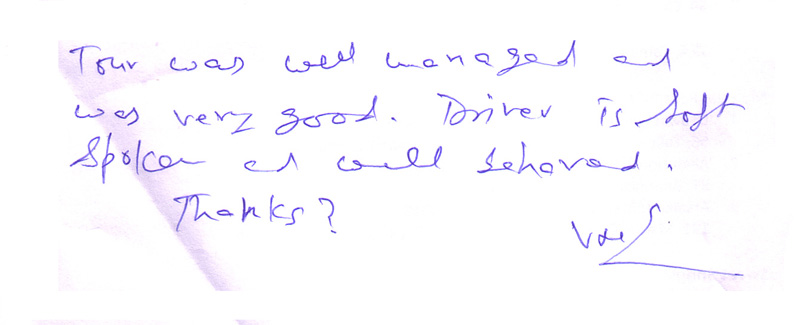 Tour was well managed and
was very good. Driver is soft
spoken and well behaved.
Thanks?